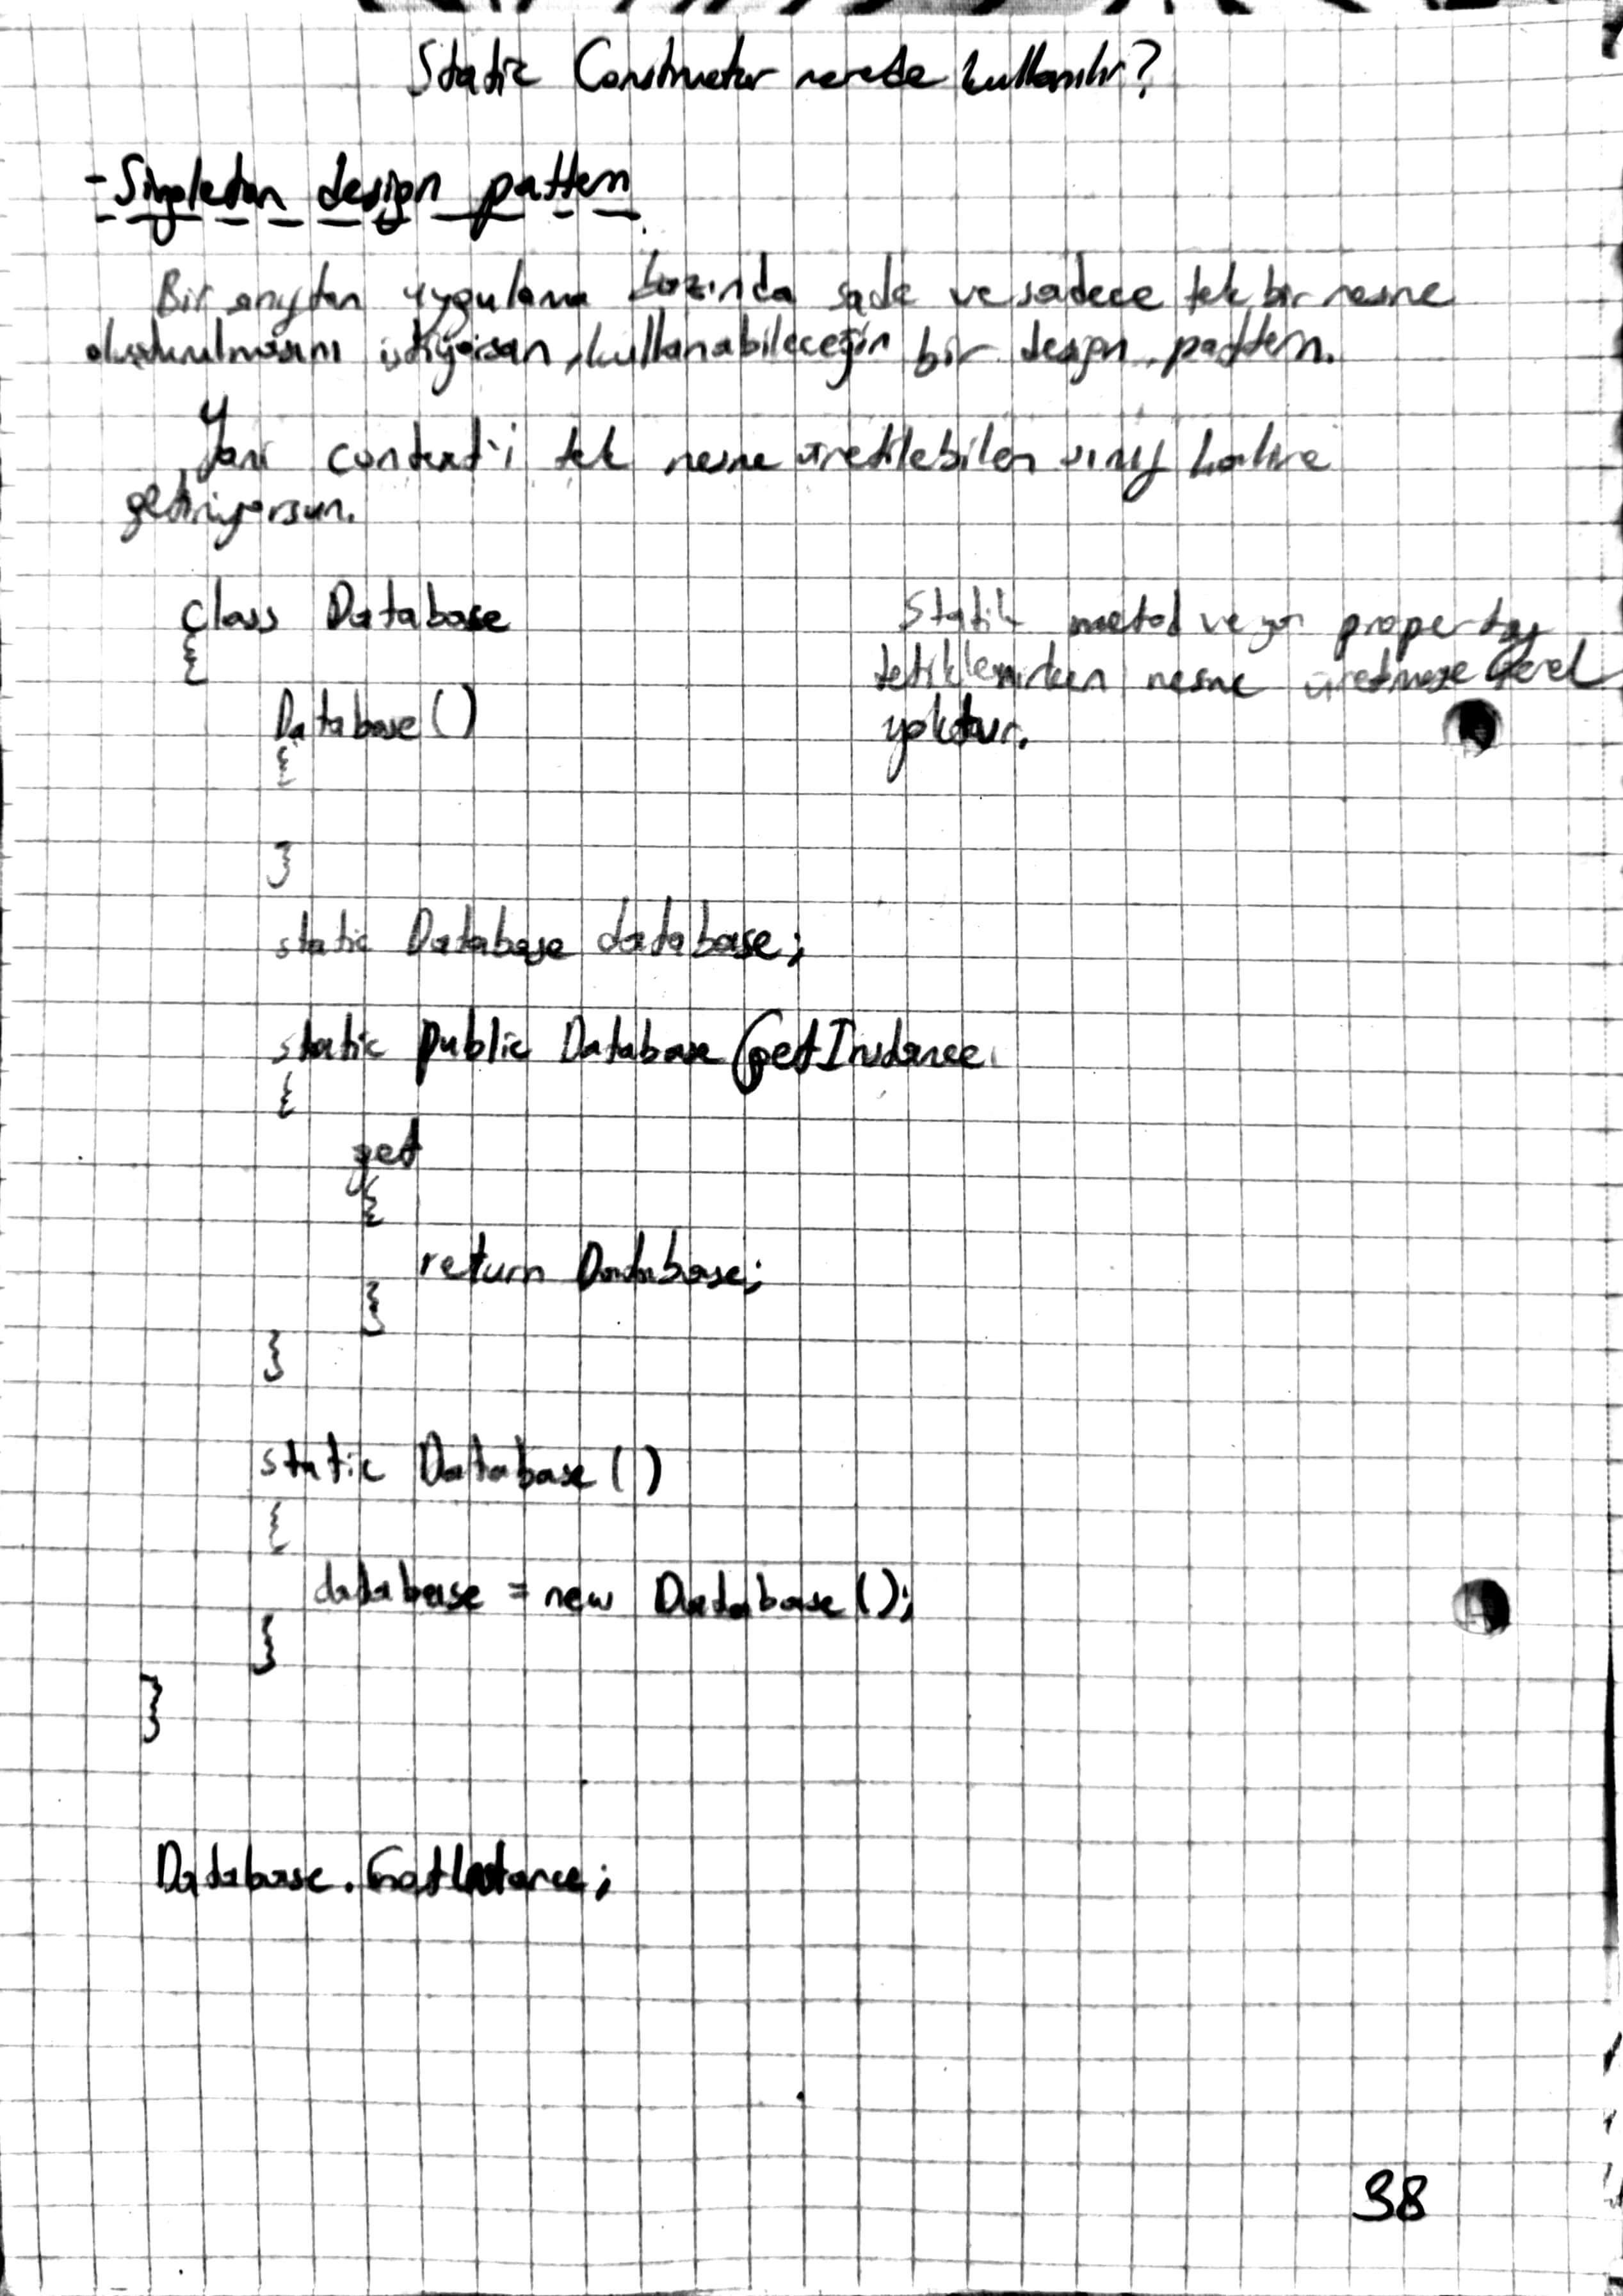 Static Constructor nerede kullanılır?
- Singleton design pattern
Bir sınıftan uygulama bazında sade ve sadece tek bir nesne
oluşturulmasını istiyorsan, kullanabileceğin bir design pattern.
Yani context'i tek nesne üretilebilen sınıf haline
getiriyorsun.
class Database
{
Database()
{
}
static Database database;
static public Database GetInstance
{
get
{
return Database;
}
}
static Database()
{
database = new Database();
}
}
Statik metod veya property
tetiklenirken nesne üretmeye gerek
yoktur.
Database.GetInstance;
38